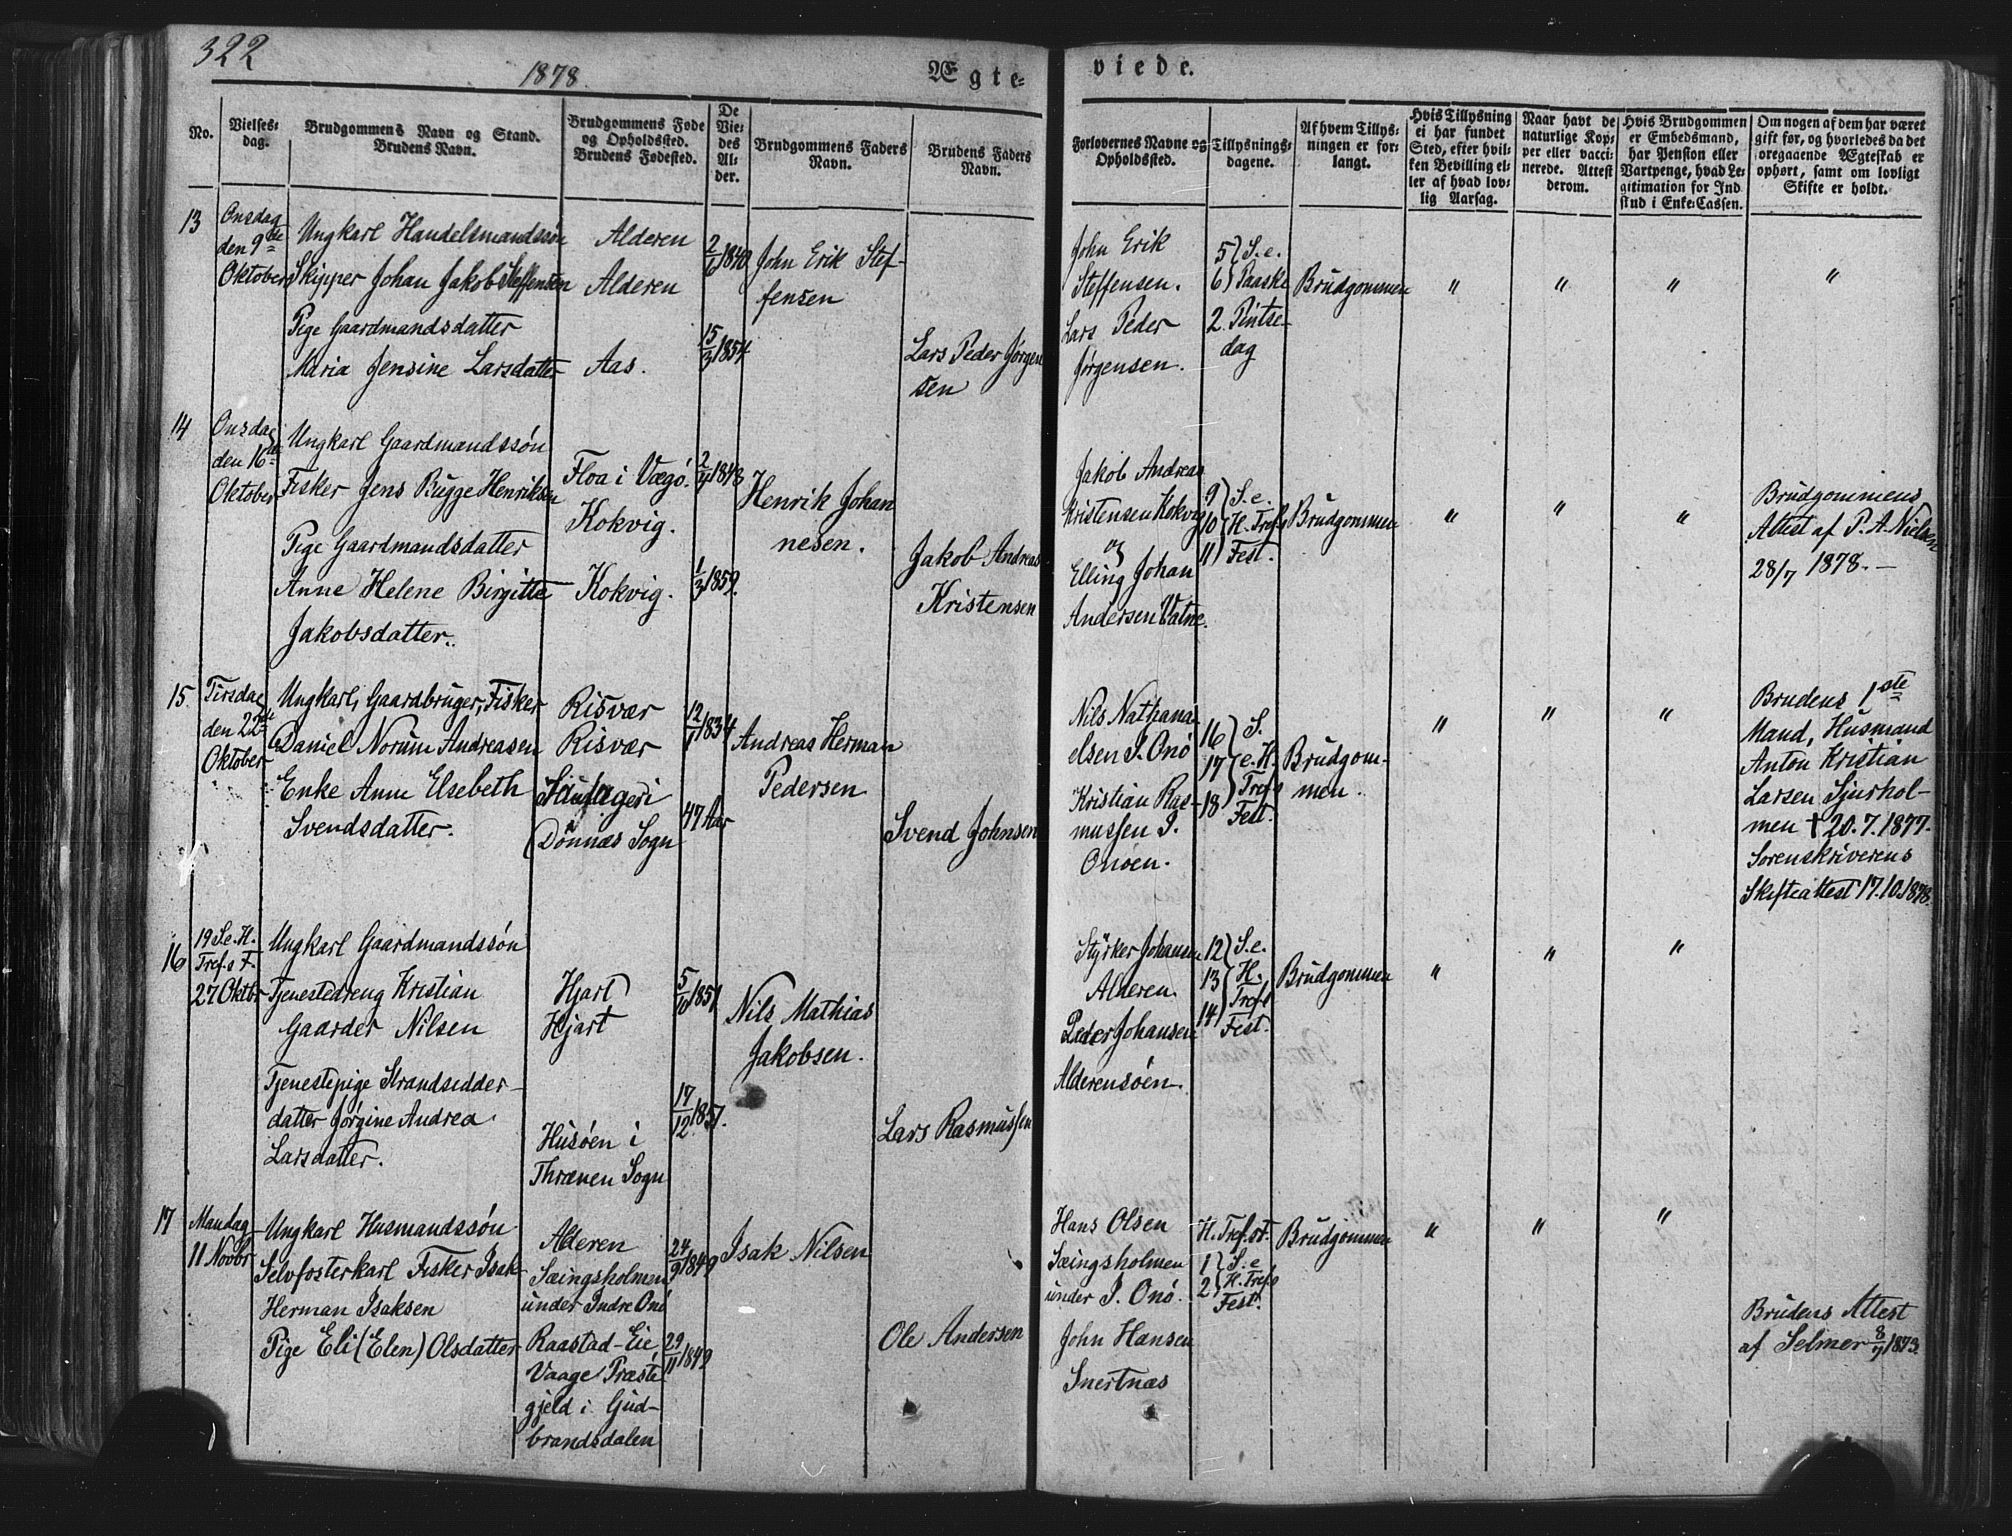 322
1878.
Ægte-
viede.
No.
Vielses-
dag.
Brudgommens Navn og Stand.
Brudens Navn.
Brudgommens Føde
og Opholdssted.
Brudens Fødested.
De
Vie-
des
Al-
der.
Brudgommens Faders
Navn.
Brudens Faders
Navn.
Forlovernes Navne og
Opholdssted.
Tillysnings-
dagene.
Af hvem Tillys-
ningen er for-
langt.
Hvis Tillysning
ei har fundet
Sted, efter hvil-
ken Bevilling el-
ler af hvad lov-
lig Aarsag.
Naar havt de
naturlige Kop-
per eller vacci-
nerede. Attest
derom.
Hvis Brudgommen
er Embedsmand,
har Pension eller
Vartpenge, hvad Le-
gitimation for Ind
skud i Enke-Cassen.
Om nogen af dem har været
gift før, og hvorledes da det
foregaaende Ægteskab er
ophørt, samt om lovligt
Skifte er holdt.
13
Onsdag
den 9de
Oktober
Ungkarl Handelsmandssøn
Skipper Johan Jakob Steffensen
Pige Gaardmandsdatter
Maria Jensine Larsdatter
Alderen
Alderen
Aas.
2/6 1840
15/3 1854
John Erik Stef-
fensen
Lars Peder Jørgen
sen
John Erik
Steffensen.
Lars Peder
Jørgensen.
5 } S. e.
6 } Paaske
2. Pintse-
dag
Brudgommen
"
"
"
"
14
Onsdag
den 16de
Oktober
Ungkarl Gaardmandssøn
Fisker Jens Bugge Henriksen
Pige Gaardmandsdatter
Anne Helene Birgitte
Jakobsdatter.
Floa i Vægø.
Kokvig.
Kokvig.
2/4 1848
1/3 1859.
Henrik Johan
nesen.
Jakob Andreas
Kristensen
Jakob Andreas
Kristensen Kokvig
og
Elling Johan
Andersen Vatne.
9 } S. e.
10 } H. Tref.s
11 } Fest.
Brudgommen
"
"
"
Brudgommens
Attest af P. A. Nielsen
28/7 1878. —
15
Tirsdag
den 22de
Oktober
Ungkarl, Gaardbruger, Fisker
Daniel Norum Andreasen
Enke Anne Elsebeth
Svendsdatter.
Risvær
Risvær
Dønnæs Sogn
12/1 1834
47 Aar
Andreas Herman
Pedersen
Svend Johnsen
Nils Nathana-
elsen I. Onø
Kristian Ras-
mussen I.
Onøen.
16 } S.
17 } e. H.
18 } Tref.s
Fest.
Brudgom-
men.
"
"
"
Brudens 1ste
Mand, Husmand
Anton Kristian
Larsen Sjurhol-
men † 20. 7. 1877.
Sorenskriverens
Skifteattest 17.10.1878.
16
19 S. e. H.
Tref.s F.
27 Oktbr
Ungkarl Gaardmandssøn
Tjenestedreng Kristian
Gaarder Nilsen
Tjenestepige Strandsidder-
datter Jørgine Andrea
Larsdatter.
Hjart
Hjart
Husøen i
Thrænen Sogn
5/10 1851
17/12 1851.
Nils Mathias
Jakobsen.
Lars Rasmussen
Styrker Johansen
Alderen.
Peder Johansen
Alderensøen.
12 } S. e.
13 } H.
14 } Tref.s
Fest.
Brudgommen
"
"
"
17
Mandag
11 Novbr
Ungkarl Husmandssøn
Selvfosterkarl Fisker Isak
Herman Isaksen
Pige Eli (Elen) Olsdatter
Alderen
Sæingsholmen
under Indre Onø
Raastad-Eie
Vaage Præste
gjeld i Gud-
brandsdalen
24/9 1849
29/11 1849
Isak Nilsen
Ole Andersen
Hans Olsen
Sæingsholmen
under I. Onø.
John Hansen
Snertnæs
H. Tref. st.
1 } S. e
2 } H. Tref.s
Fest.
Brudgommen
"
"
"
Brudens Attest
af Selmer 8/7 1873.